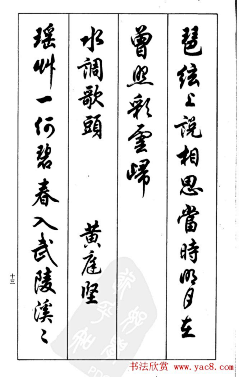 琵弦上說相思當時明月在
曾照彩雲歸
水調歌頭 黃庭堅
瑤艸一何碧春入武陵溪〻
十三
书法欣赏
www.yac8.com